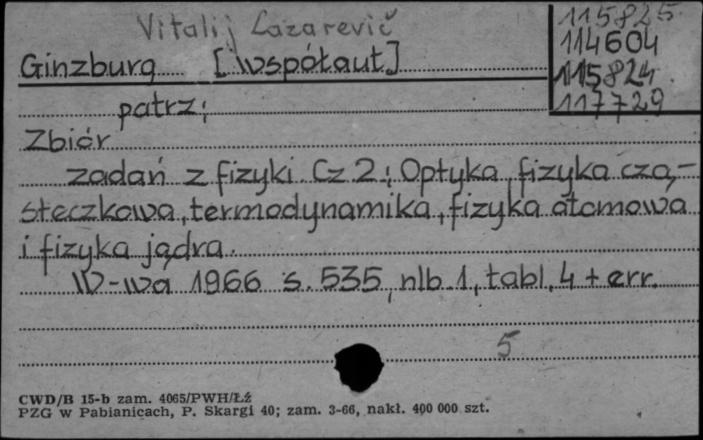 Vitalij Lazarevič
115825
114604
Ginzburg [współaut]
115824
117729
patrz:
Zbiór
zadań z fizyki. Cz 2: Optyka, fizyka czą-
steczkowa, termodynamika, fizyka atomowa
i fizyka jądra.
W-wa 1966 s. 535, nlb. 1, tabl. 4 + err.
5
CWD/B 15-b zam. 4065/PWH/Łź
PZG w Pabianicach, P. Skargi 40; zam. 3-66, nakł. 400 000 szt.